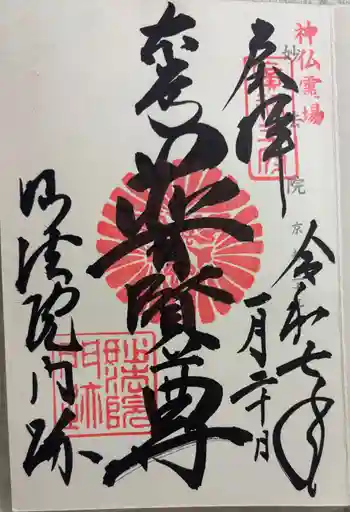 神仏霊場
妙法院
京
奉拝
令和七年
一月二十日
大本山
普賢尊
妙法院門跡
妙法院
門跡